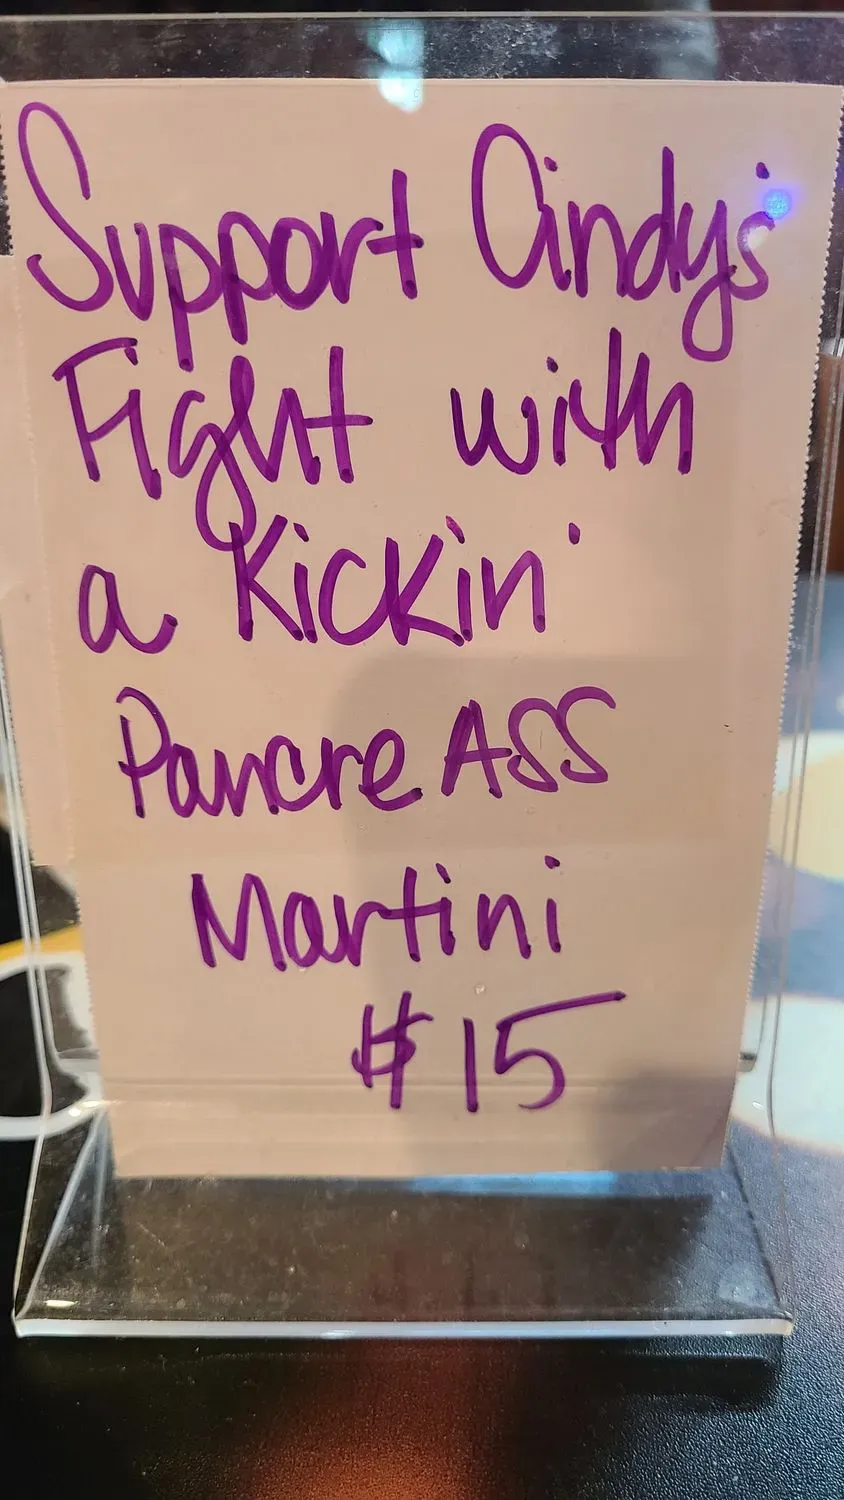 Support Cindy's
Fight with
a Kickin'
PancreASS
Martini
$15